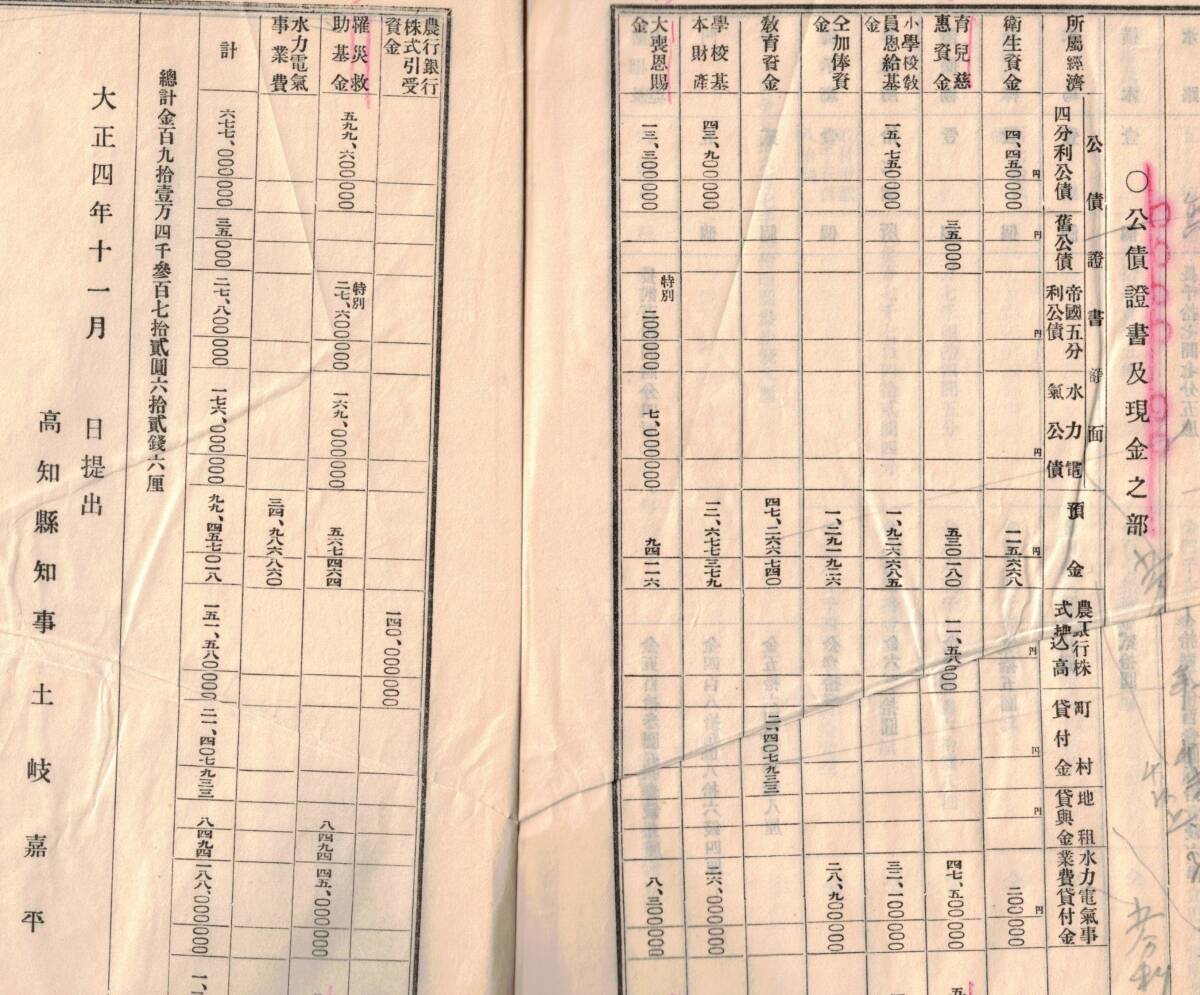 〇公債證書及現金之部
所屬經濟
公債證書券面
四分利公債
舊公債
帝國五分利公債
水力電氣公債
預金
農工銀行株式拂込高
町村貸付金
地租貸與金
水力電氣事業費貸付金
衛生資金
四、四五〇〇〇〇
一一五六六八
二〇〇〇〇〇
育兒慈惠資金
三五〇〇〇
五三〇一八〇
一一、五八〇〇〇〇
四七、五〇〇〇〇〇
小學校敎員恩給基金
一五、七五〇〇〇〇
一、九二六六八五
三二、一〇〇〇〇〇
仝加俸資金
一、二九一九二六
二八、九〇〇〇〇〇
敎育資金
四七、二六六七四〇
二一、四〇七九三三
學校基本財產
四三、九〇〇〇〇〇
一二、六七七三七九
二六、〇〇〇〇〇〇
大喪恩賜金
一三、三〇〇〇〇〇
特別
二〇〇〇〇〇
七、〇〇〇〇〇〇
九四一一六
八、三〇〇〇〇〇
農行銀行株式引受資金
一四〇、〇〇〇〇〇〇
罹災救助基金
五九九、六〇〇〇〇〇
特別
二七、六〇〇〇〇〇
一六九、〇〇〇〇〇〇
五六七四六四
八四九四
四五、〇〇〇〇〇〇
水力電氣事業費
三四、九八六八六〇
計
六七七、〇〇〇〇〇〇
三五〇〇〇
二七、八〇〇〇〇〇
一七六、〇〇〇〇〇〇
九九、四五七〇一八
一五一、五八〇〇〇〇
二一、四〇七九三三
八四九四
一八八、〇〇〇〇〇〇
總計金百九拾壹万四千參百七拾貳圓六拾貳錢六厘
大正四年十一月　日提出
高知縣知事土岐嘉平